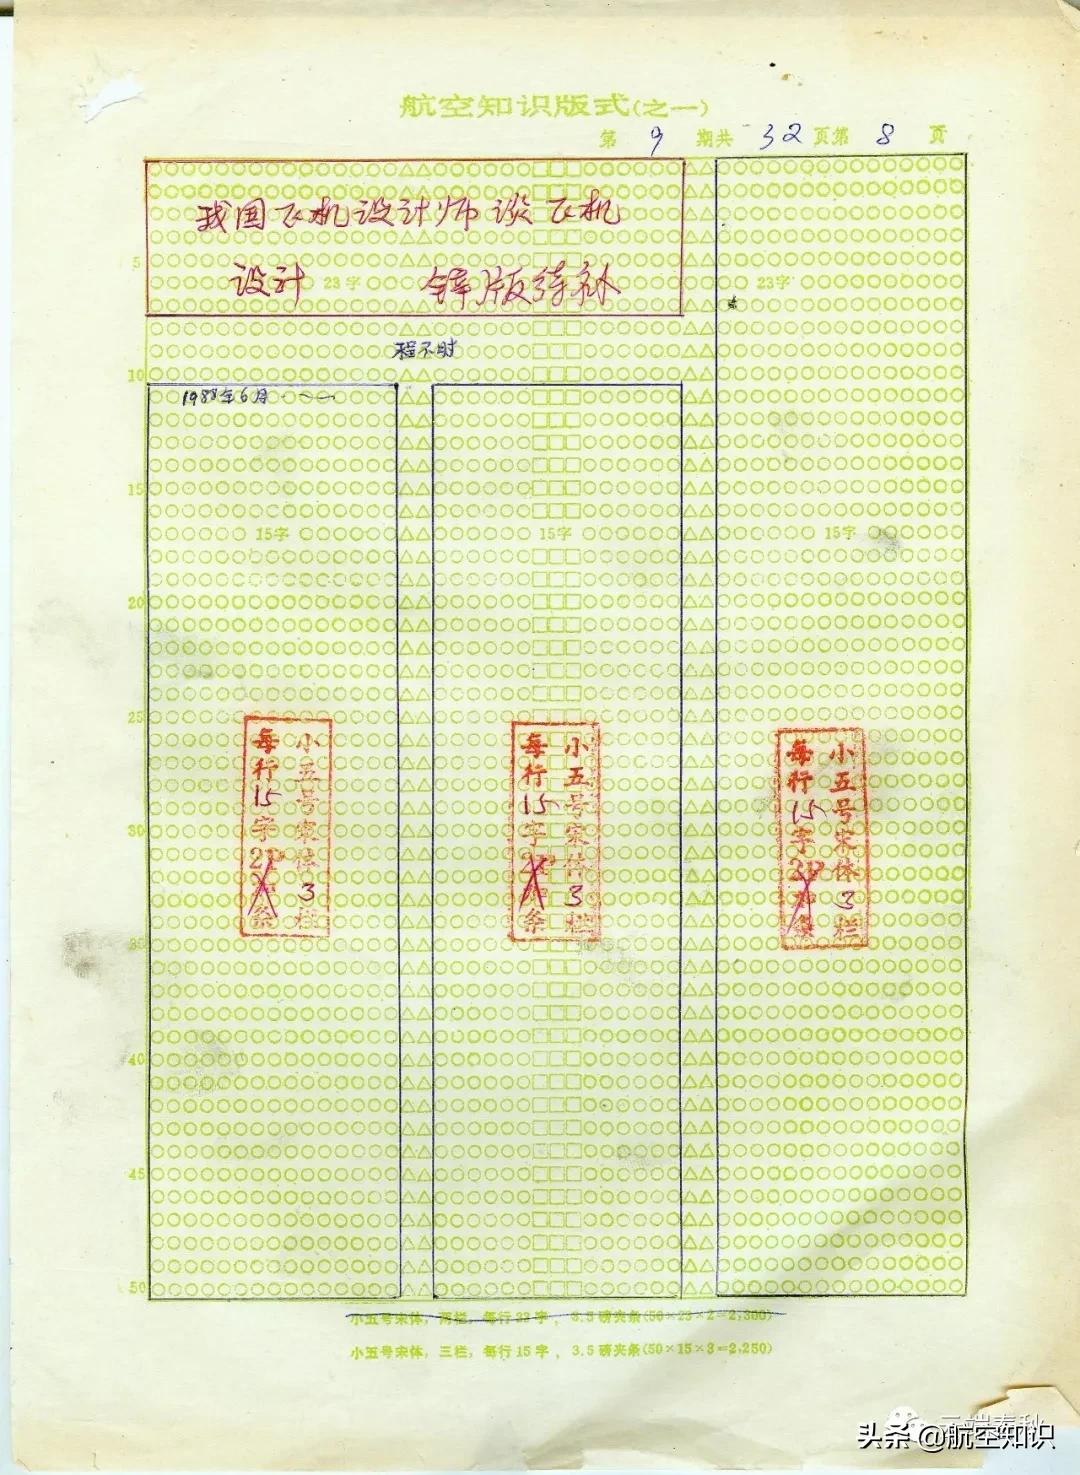 航空知识版式(之一)
第 9 期共 32 页第 8 页
我国飞机设计师谈飞机
设计 锌版待补
5
23字
23字
程不时
10
1988年6月
15
15字
15字
15字
20
25
小五号宋体3栏
每行15字
条
小五号宋体3栏
每行15字
条
小五号宋体3栏
每行15字
条
30
35
40
45
50
小五号宋体，两栏，每行23字，3.5磅夹条(50×23×2=2,300)
小五号宋体，三栏，每行15字，3.5磅夹条(50×15×3=2,250)
头条 @航空知识